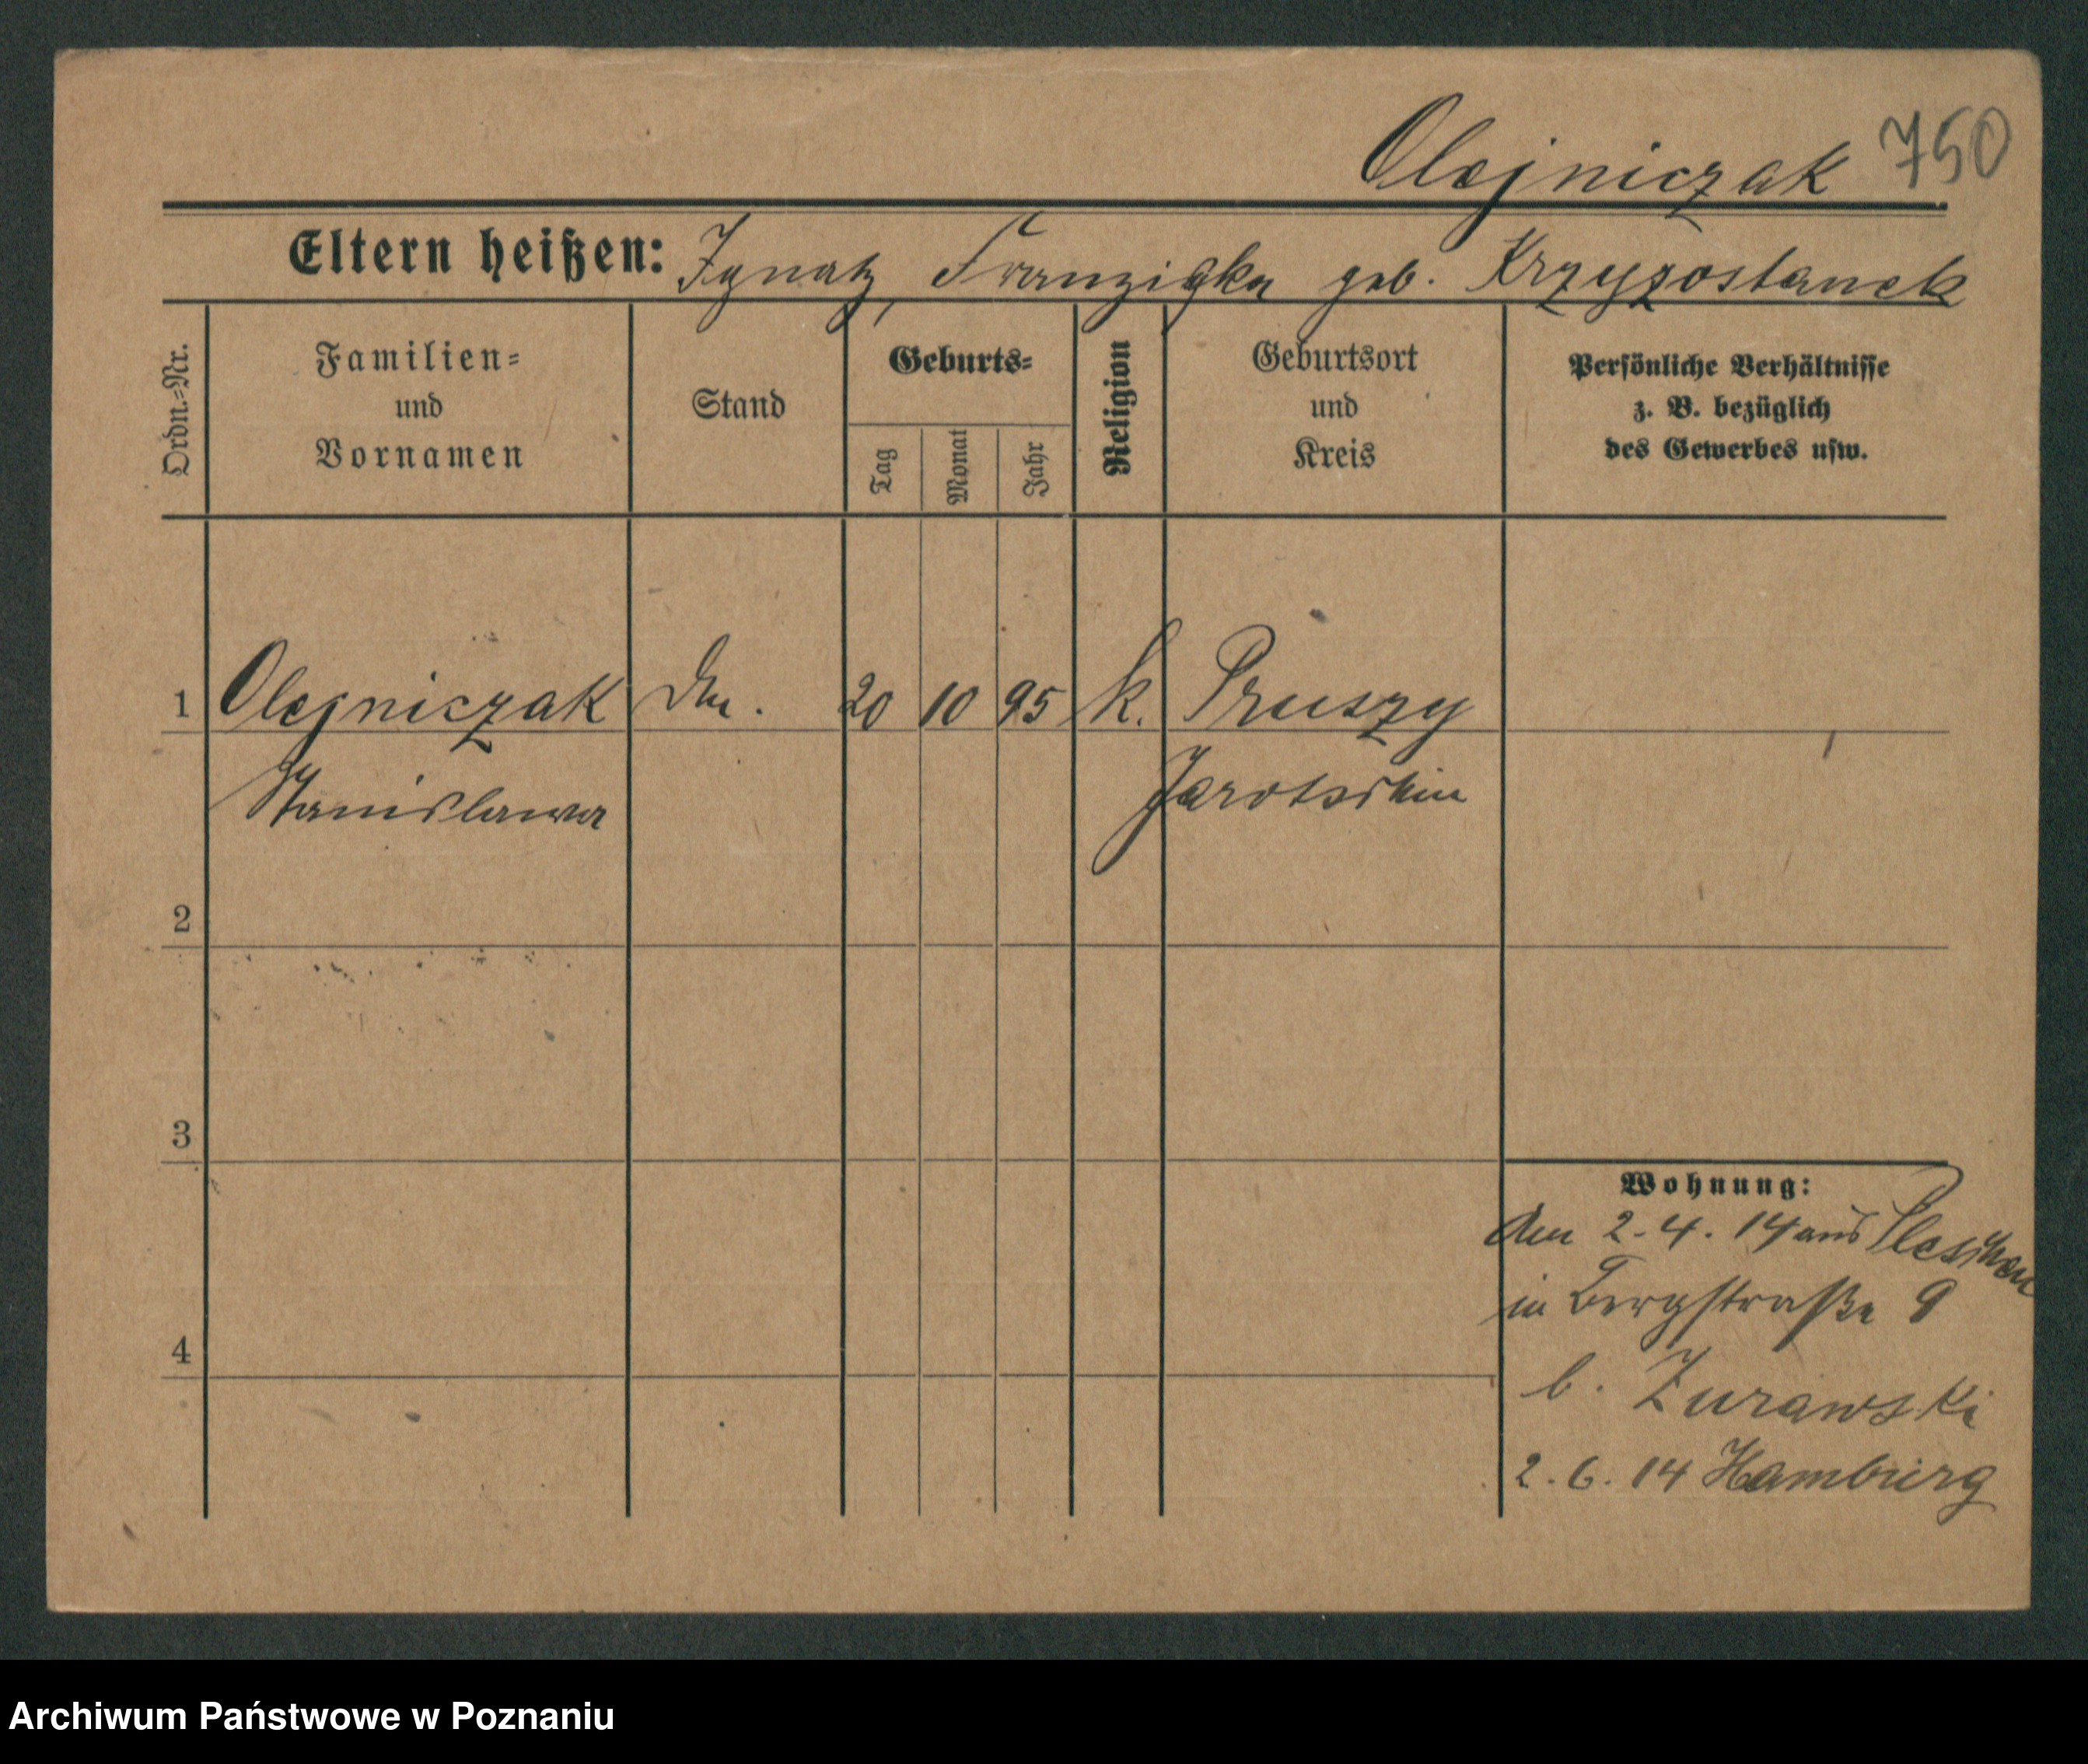 Olejniczak 750
Eltern heißen: Ignatz, Franziska geb. Krzyzostanek
Ordn.=Nr.
Familien=
und
Vornamen
Stand
Geburts=
Tag
Monat
Jahr
Religion
Geburtsort
und
Kreis
Persönliche Verhältnisse
z. B. bezüglich
des Gewerbes usw.
1 Olejniczak 20 10 95 k. Pruszy
Stanislawa Jarotschin
2
3
4
Wohnung:
2.4.14 aus Pleschen
in Bergstraße 9
b. Zurawski
2.6.14 Hamburg
Archiwum Państwowe w Poznaniu